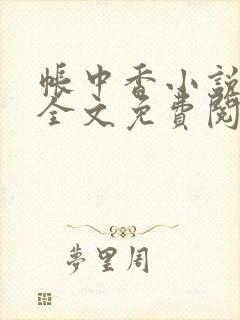 帳中香小說
全文免費閱
夢里周